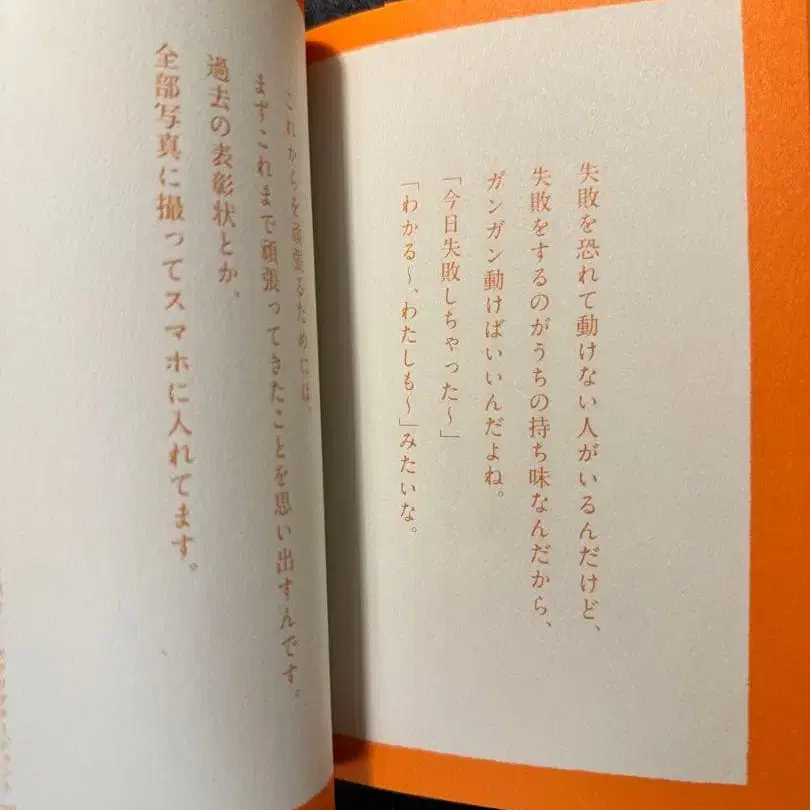 失敗を恐れて動けない人がいるんだけど、
失敗をするのがうちの持ち味なんだから、
ガンガン動けばいいんだよね。
「今日失敗しちゃった〜」
「わかる〜、わたしも〜」みたいな。
これからを頑張るためには、
まずこれまで頑張ってきたことを思い出すんです。
過去の表彰状とか、
全部写真に撮ってスマホに入れてます。